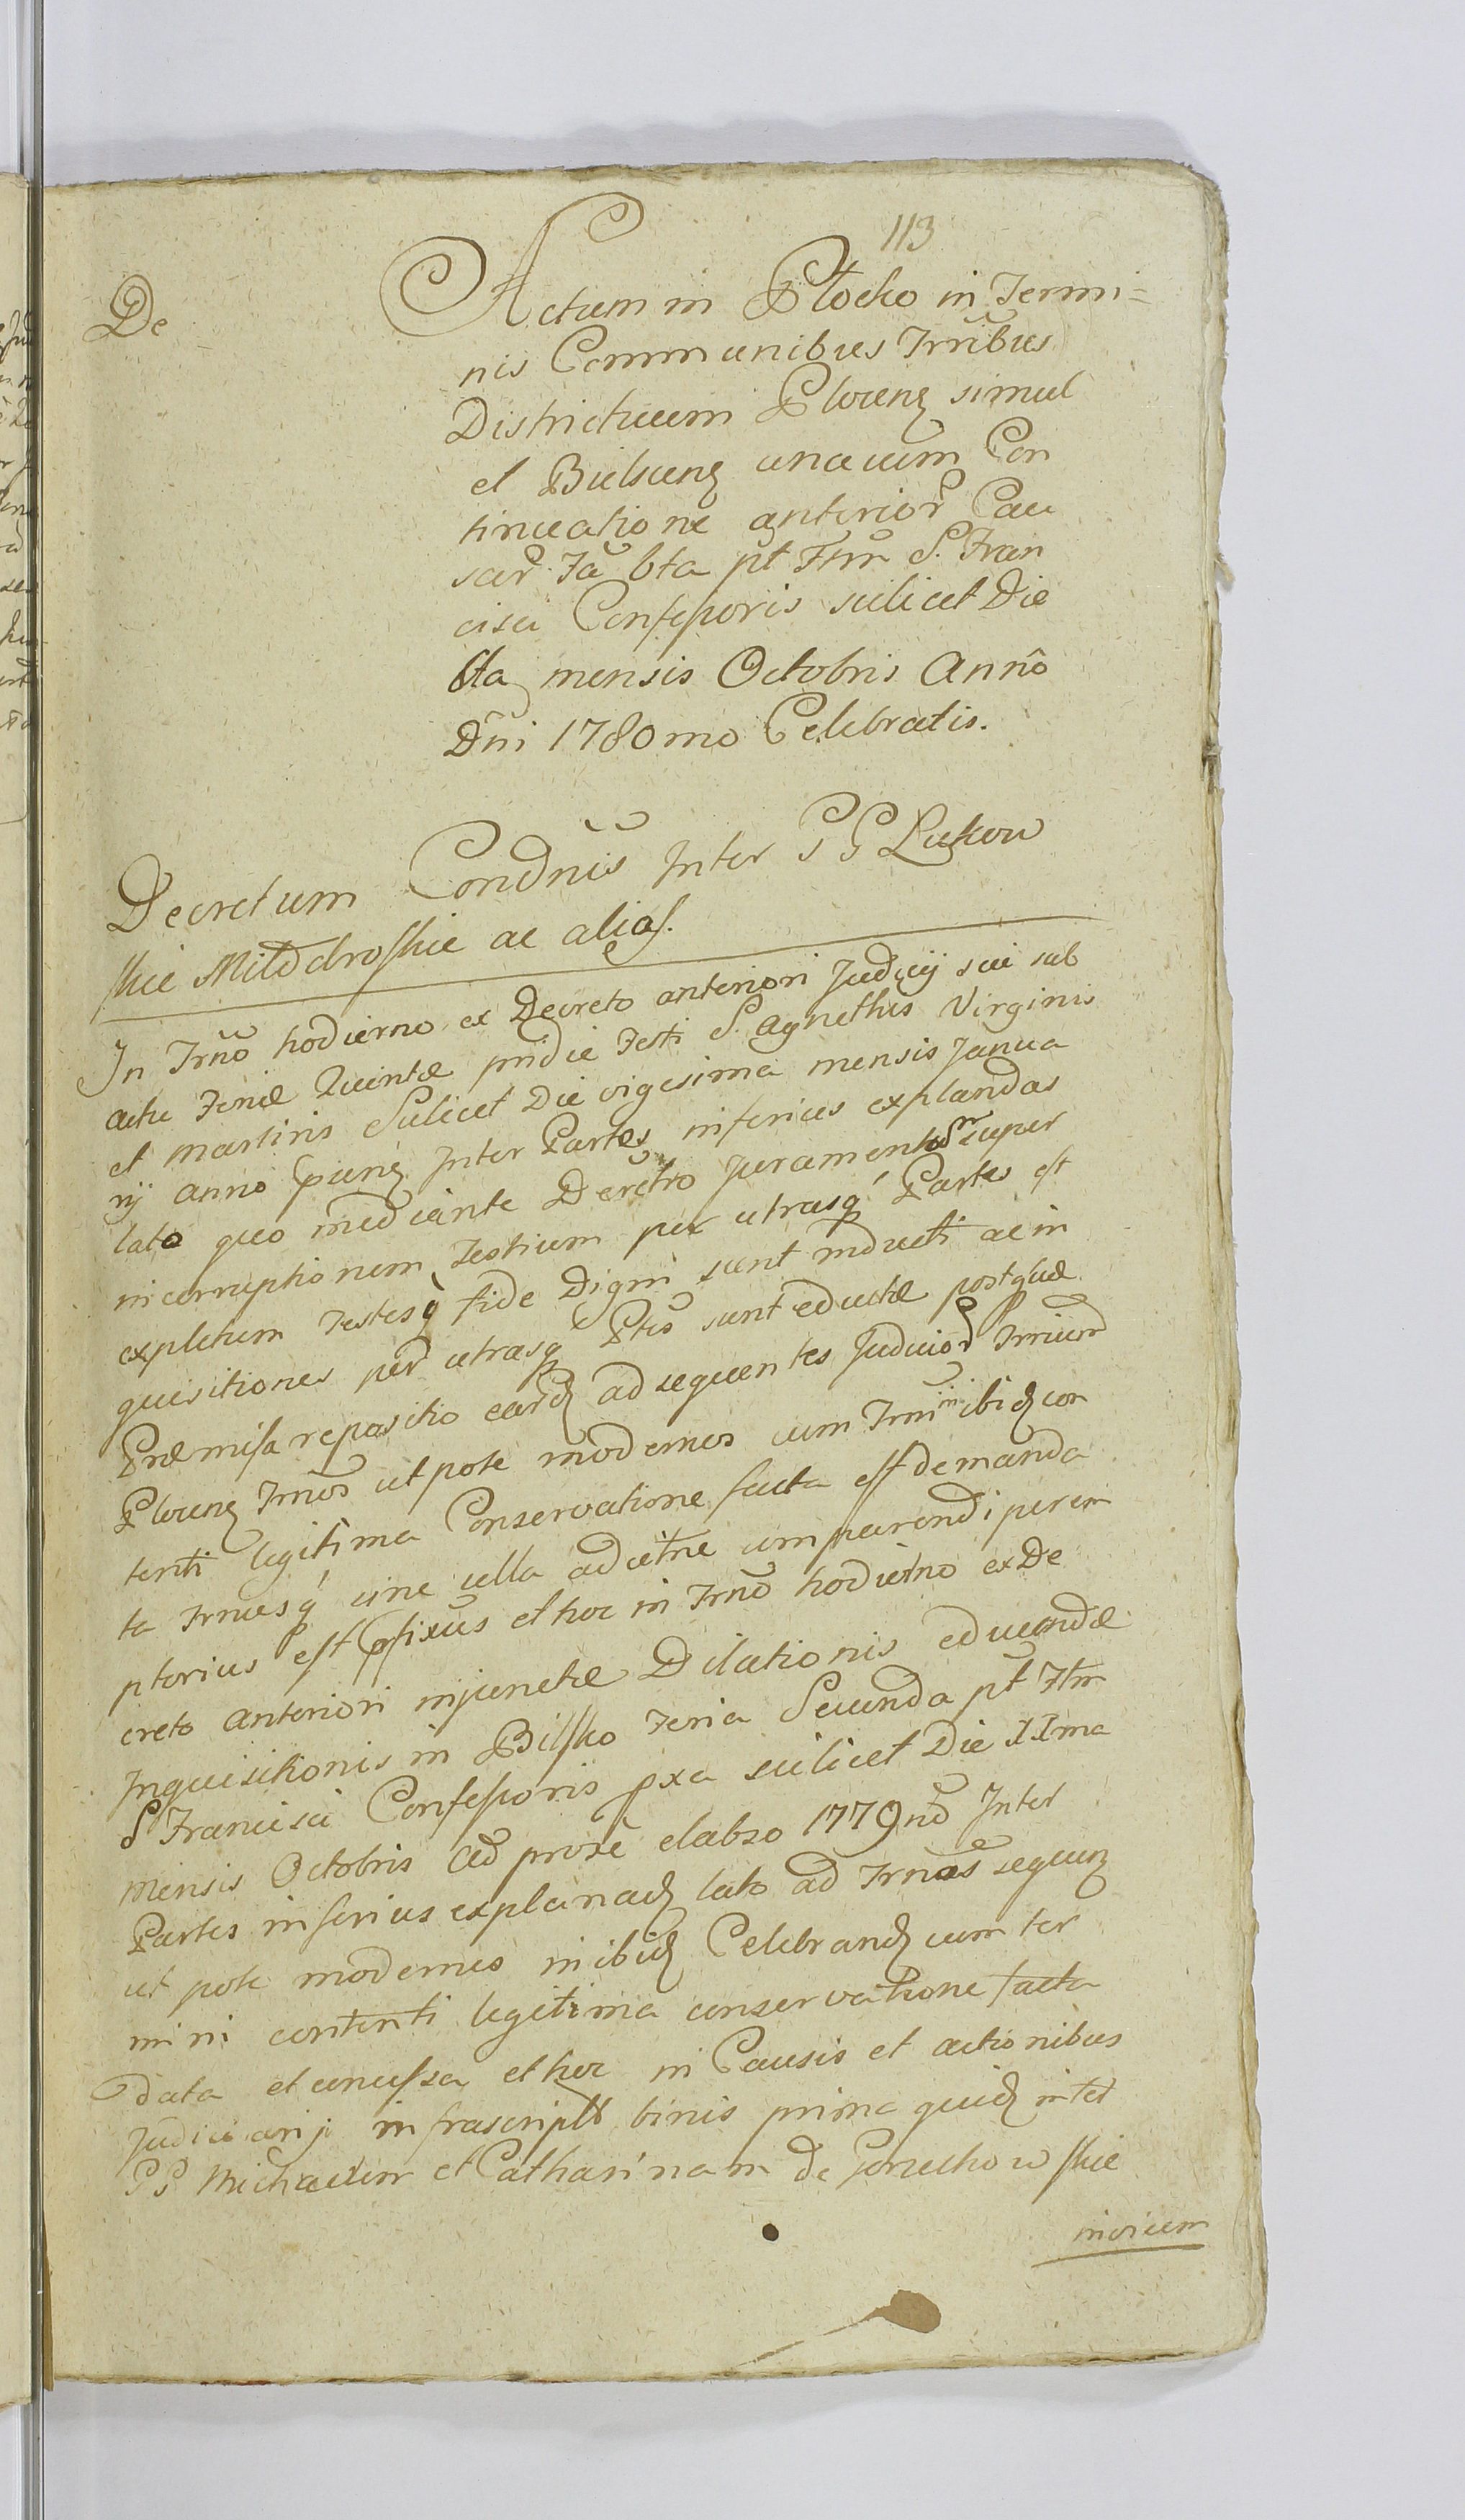 113
De
Actum in Płocko in Termi=
nis Communibus Trñibus
Districtuum Plocen simul
et Bielscen una cum Con
tinuatione anterior Cau
sar. Fã 6ta pt Ftm S. Fran
cisci Confessoris scilicet Die
6ta mensis Octobris Anno
Dñi 1780mo Celebratis.
Decretum Condnis Inter GG Łukow
skie Miłodroskie ac alios.
In Trño hodierno ex Decreto anteriori Judicij sui sub
actu Feriæ Quintæ pridie Festi S. Agnethis Virginis
et Martiris Scilicet Die vigesima mensis Janua
rij anno præsen Inter Partes inferius explandas
lato quo mediante Decreto juramentum super
incorruptionem Testium per utrasq Partes est
expletum Testesq fide Digni sunt inducti ac in
quisitiones per utrasq Ptes sunt eductæ postquæ
Præmissa repositio eard ad sequentes Judicior Trrium
Plocen Trnos utpote modernos cum Trni ibid con
tenti legitima Conservatione facta est demanda
ta Trnusq sine ulla adcitne comparendi perem
ptorius est pfixus et hoc in Trño hodierno ex De
creto anteriori injunctæ Dilationis educendæ
Inquisitionis in Bilsko Feria Secunda pt Ftm
S Francisci Confessoris pxa scilicet Die XIma
Mensis Octobris Ao proxe elabso 1779no Inter
Partes inferius explanad lato ad Trnos sequen
ut pote modernos inibid Celebrand cum ter
mini contenti legitima conservatione facta
data et concessa et hoc in Causis et actionibus
judiciarij infrascript binis prima quid inter
GG Michaelem et Catharinam de Gorzechowskie
invicem